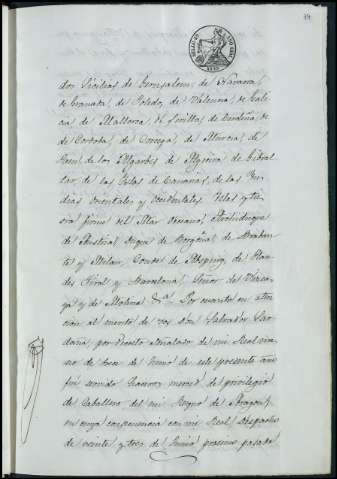 dos Sicilias de Jerusalem, de Navarra,
de Granada, de Toledo, de Valencia, de Gali
cia de Mallorca, de Sevilla, de Cerdeña, de
de Cordoba, de Corcega, de Murcia, de
Jaen, de los Algarbes de Algecira de Gibral
tar, de las Islas de Canarias, de las Yn
dias orientales y occidentales Yslas y tie
rra firme del Mar Oceano; Archiduque
de Austria; Duque de Borgoña, de Braban
te y Milan, Conde de Abspurg, de Flan
des Tirol y Barcelona, Señor de Vizca
ya y de Molina &a. Por cuanto en aten
cion al merito de vos don Salvador
por Decreto señalado de mi Real ma
no de doce de Junio de este presente año
fui servido haceros merced de privilegio
de Caballero del mi Reyno de Aragon,
en cuya consecuencia con mi Real Despacho
de veinte y tres de Junio proximo pasado